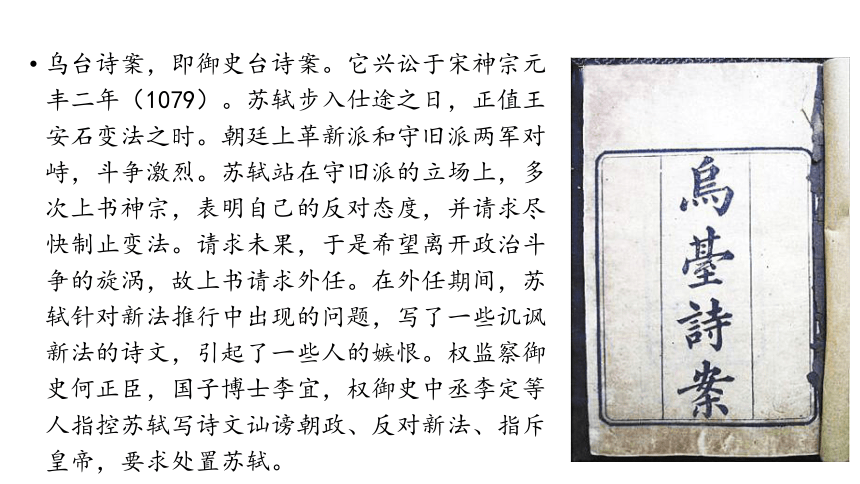 • 乌台诗案，即御史台诗案。它兴讼于宋神宗元
丰二年（1079）。苏轼步入仕途之日，正值王
安石变法之时。朝廷上革新派和守旧派两军对
峙，斗争激烈。苏轼站在守旧派的立场上，多
次上书神宗，表明自己的反对态度，并请求尽
快制止变法。请求未果，于是希望离开政治斗
争的旋涡，故上书请求外任。在外任期间，苏
轼针对新法推行中出现的问题，写了一些讥讽
新法的诗文，引起了一些人的嫉恨。权监察御
史何正臣，国子博士李宜，权御史中丞李定等
人指控苏轼写诗文讪谤朝政、反对新法、指斥
皇帝，要求处置苏轼。
烏臺詩案